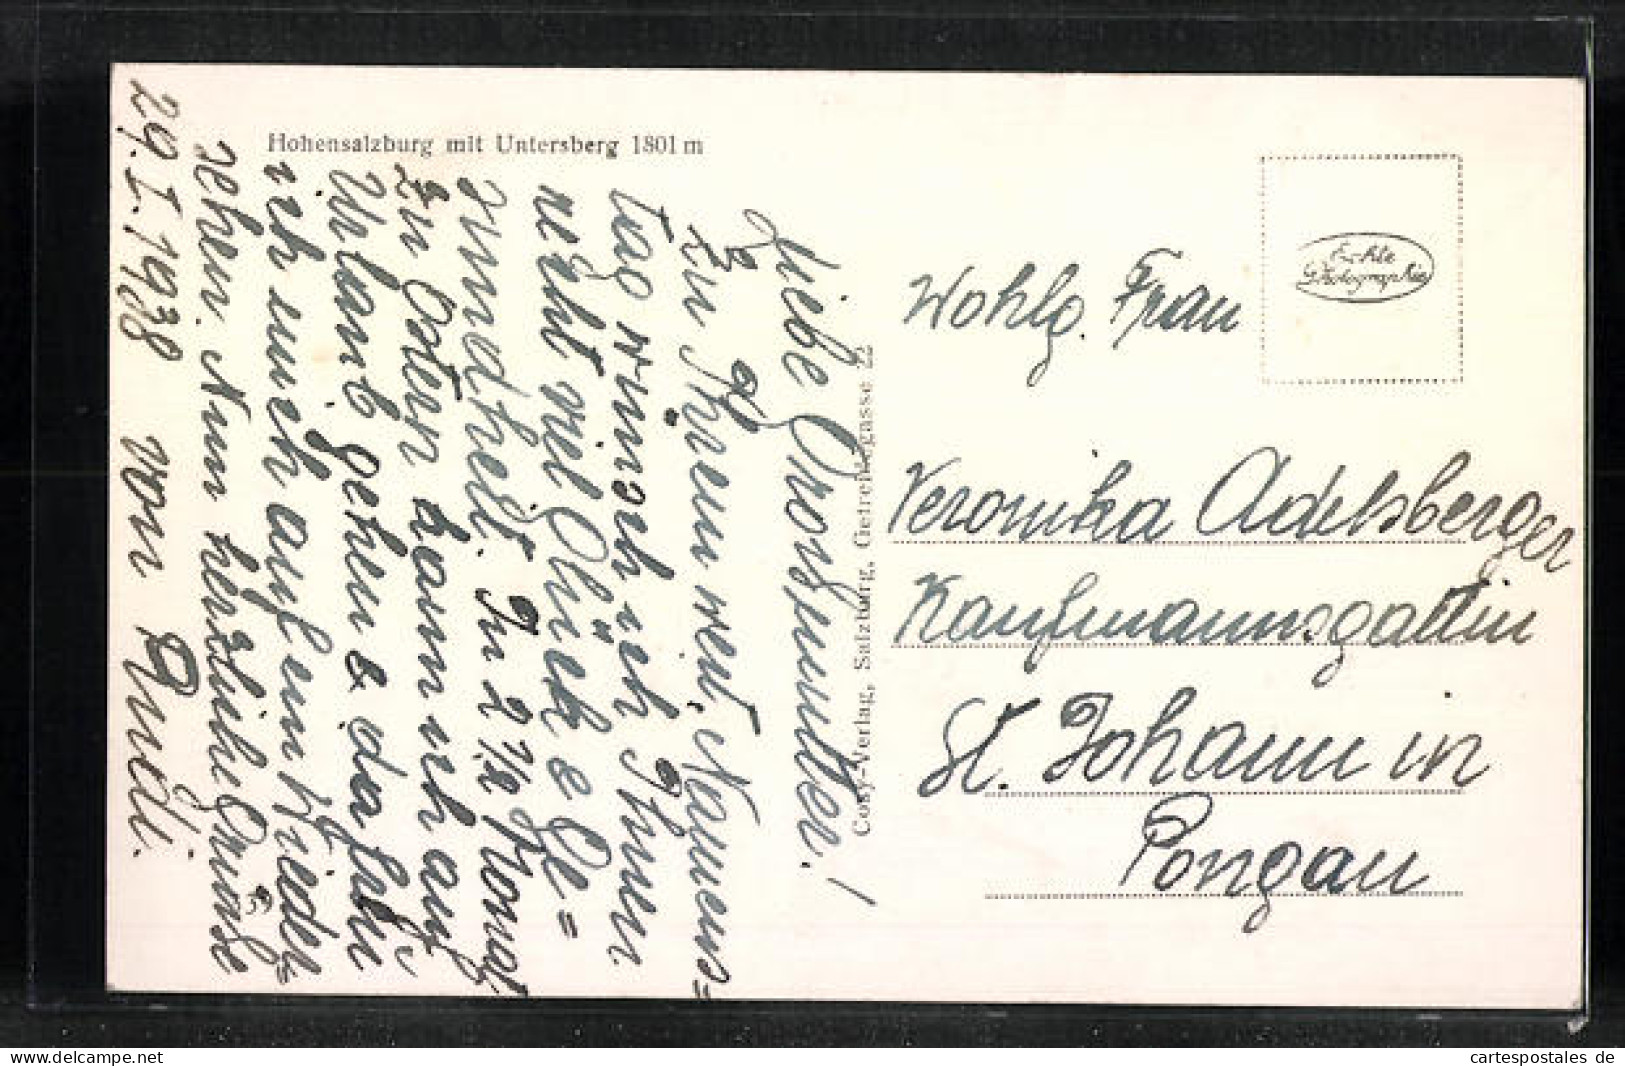 Hohensalzburg mit Untersberg 1801 m
Liebe Großmutter!
Zu Ihrem wert. Namens=
tag wünsch ich Ihnen
recht viel Glück & Ge=
sundheit. In 2 1/2 Monat
zu Ostern kann ich auf
Urlaub gehen & da freu
ich mich auf ein Wieder=
sehen. Nun herzliche Grüsse
29.I.1938 von Rudi.
39
Cosy-Verlag, Salzburg, Getreidegasse 22
Echte
Photographie
Wohlg. Frau
Veronika Adelsberger
Kaufmannsgattin
St. Johann in
Pongau
cartespostales de